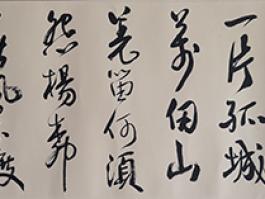 一片孤城
萬仞山
羌笛何須
怨楊柳
風不度